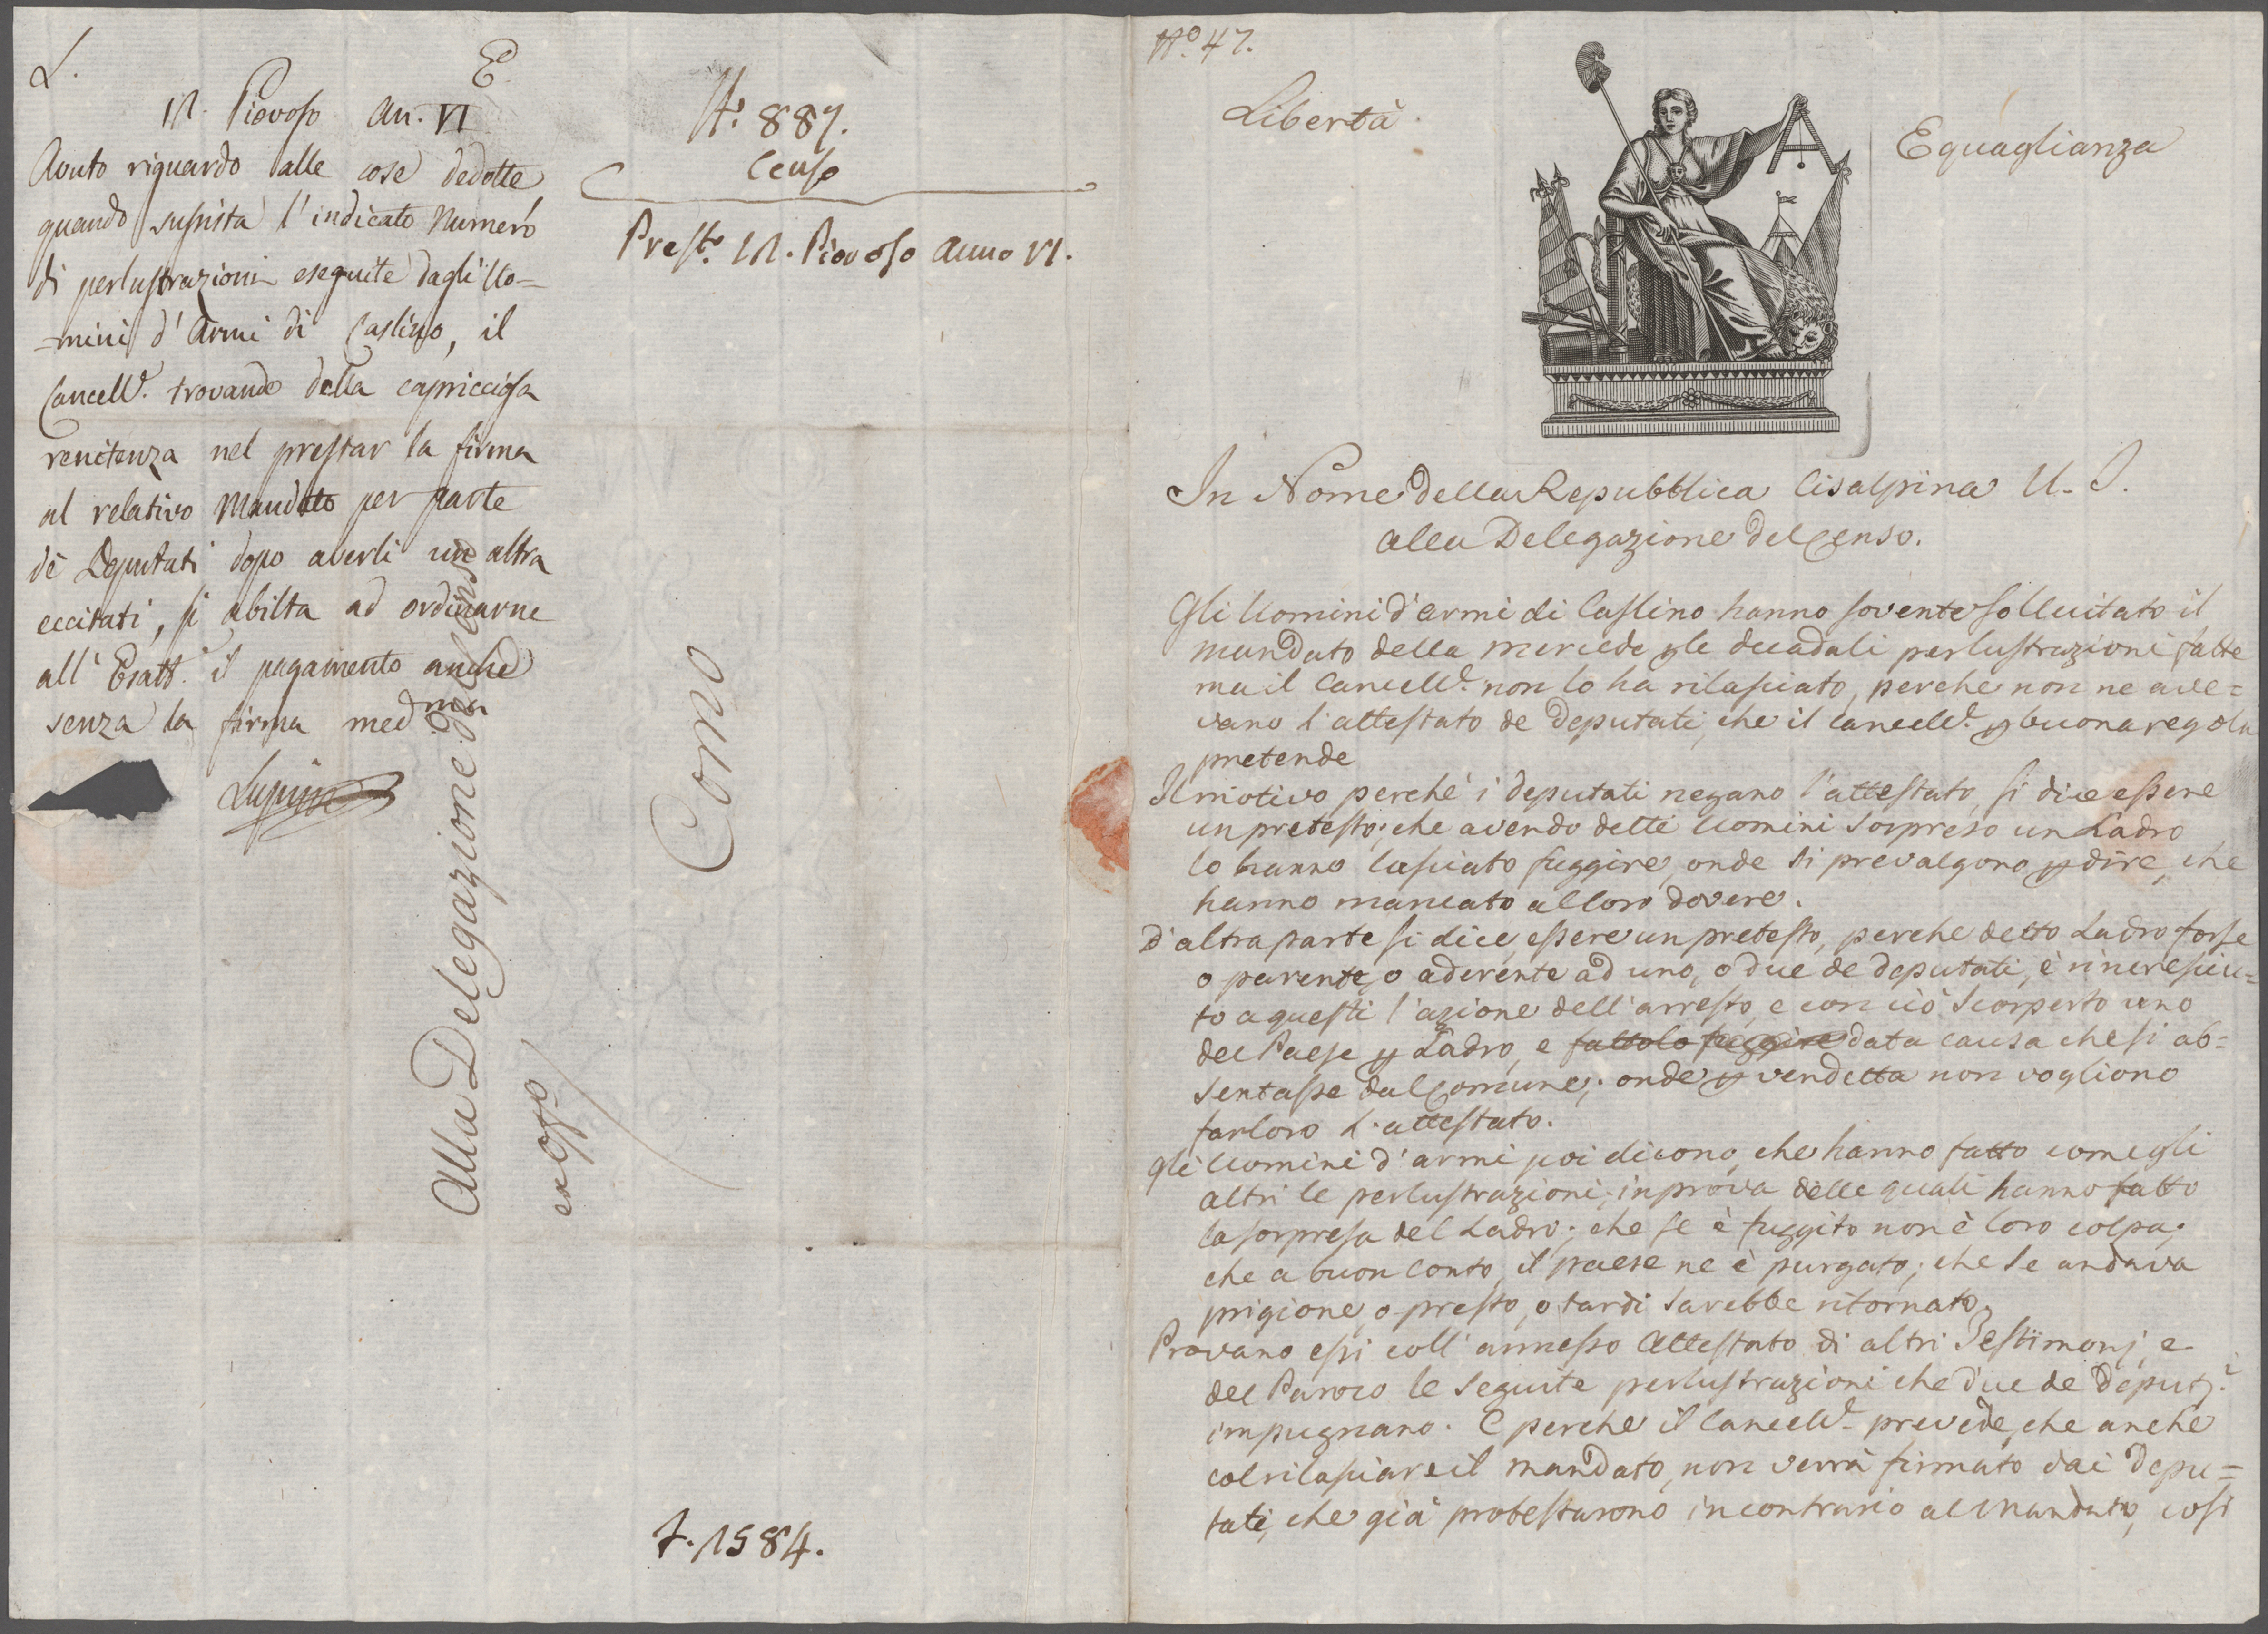 L. E.
11. Piovoso An. VI
Avuto riguardo alle cose dedotte
quando sussista l'indicato Numero
di perlustrazioni eseguite dagli Uo=
=mini d'Armi di Caslino, il
Cancell.e trovando della capricciosa
renitenza nel prestar la firma
al relativo Mandato per parte
de' Deputati dopo averli un altra
eccitati, si abilita ad ordinarne
all'Esatt.e il pagamento anche
senza la firma med.ma
Alla Delegazione del Censo
ex Off.o
Como
N.o 887.
Censo
Prest.o 11. Piovoso Anno VI.
F. 1584.
N.o 47.
Libertà Eguaglianza
In Nome della Repubblica Cisalpina U. I.
alla Delegazione del Censo.
Gli Uomini d'armi di Caslino hanno sovente sollecitato il
mandato della mercede p le decadali perlustrazioni fatte
ma il Cancell.e non lo ha rilasciato, perche non ne ave=
vano l'attestato de Deputati, che il Cancell.e p buona regola
pretende
Il motivo perchè i deputati negano l'attestato, si dice essere
un pretesto; che avendo dette Uomini sorpreso un Ladro
lo hanno lasciato fuggire, onde si prevalgono p dire, che
hanno mancato al loro dovere.
D'altra parte si dice, essere un pretesto, perche detto Ladro forse
o parente, o aderente ad uno, o due de deputati, è rincresciu=
to a questi l'azione dell'arresto, e con ciò scorperto uno
del Paese p Ladro, e fattolo fuggire data causa che si ab=
sentasse dal Comune; onde p vendetta non vogliono
far loro l'attestato.
Gli Uomini d'armi poi dicono, che hanno fatto come gli
altri le perlustrazioni; in prova delle quali hanno fatto
la sorpresa del Ladro; che se è fuggito non è loro colpa;
che a buon conto, il paese ne è purgato; che se andava
prigione, o presto, o tardi sarebbe ritornato.
Provano essi coll'annesso Attestato di altri Testimonj, e
del Paroco le seguite perlustrazioni che due de Deput.i
impugnano. E perche il Cancell.e prevede, che anche
col rilasciare il mandato, non verrà firmato dai Depu=
tati, che già protestarono incontrario al Mandato, così